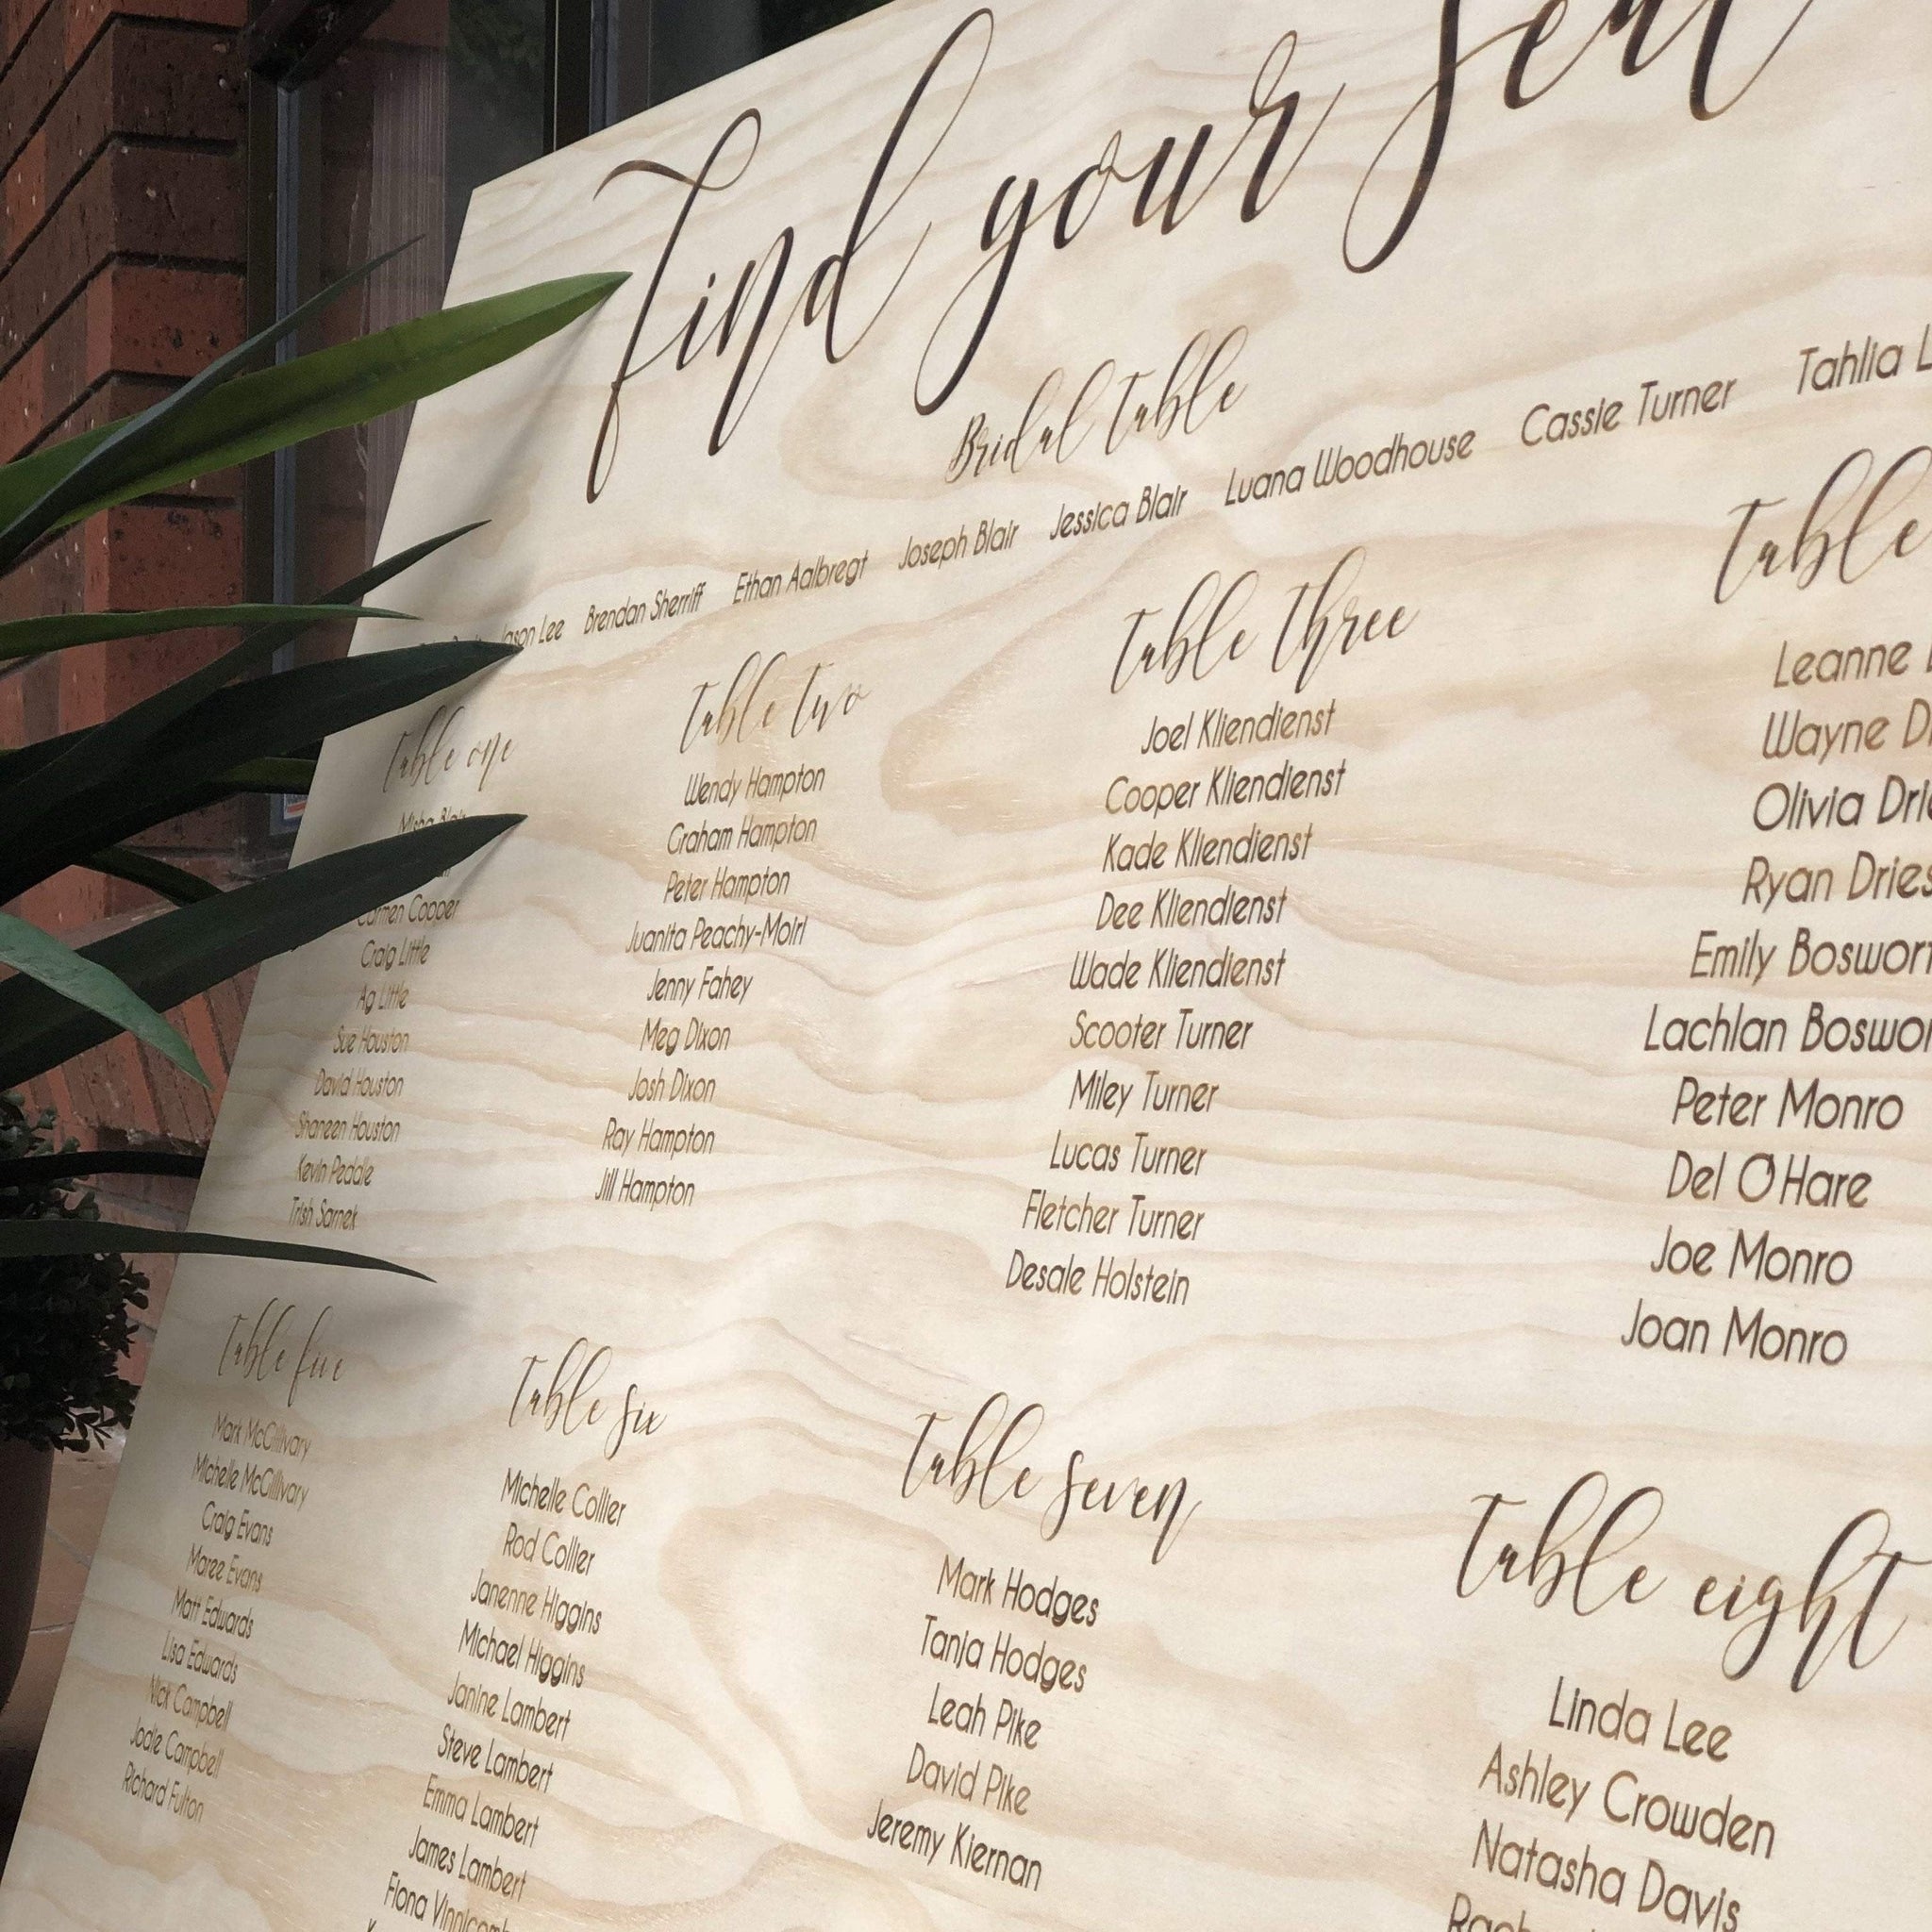 find your seat
Bridal Table
Jason Lee Brendan Sherriff Ethan Aalbregt Joseph Blair Jessica Blair Luana Woodhouse Cassie Turner Tahlia
Table one
Misha Blair
Carmen Cooper
Craig Little
Ag Little
Sue Houston
David Houston
Shaneen Houston
Kevin Peddle
Trish Sarnek
Table two
Wendy Hampton
Graham Hampton
Peter Hampton
Juanita Peachy-Moirl
Jenny Fahey
Meg Dixon
Josh Dixon
Ray Hampton
Jill Hampton
Table three
Joel Kliendienst
Cooper Kliendienst
Kade Kliendienst
Dee Kliendienst
Wade Kliendienst
Scooter Turner
Miley Turner
Lucas Turner
Fletcher Turner
Desale Holstein
Table
Leanne
Wayne
Olivia
Ryan
Emily
Lachlan
Peter Monro
Del O'Hare
Joe Monro
Joan Monro
Table five
Mark McGillivary
Michelle McGillivary
Craig Evans
Maree Evans
Matt Edwards
Lisa Edwards
Nick Campbell
Jodie Campbell
Richard Fulton
Table six
Michelle Collier
Rod Collier
Janenne Higgins
Michael Higgins
Janine Lambert
Steve Lambert
Emma Lambert
James Lambert
Fiona
Table seven
Mark Hodges
Tania Hodges
Leah Pike
David Pike
Jeremy Kiernan
Table eight
Linda Lee
Ashley Crowden
Natasha Davis